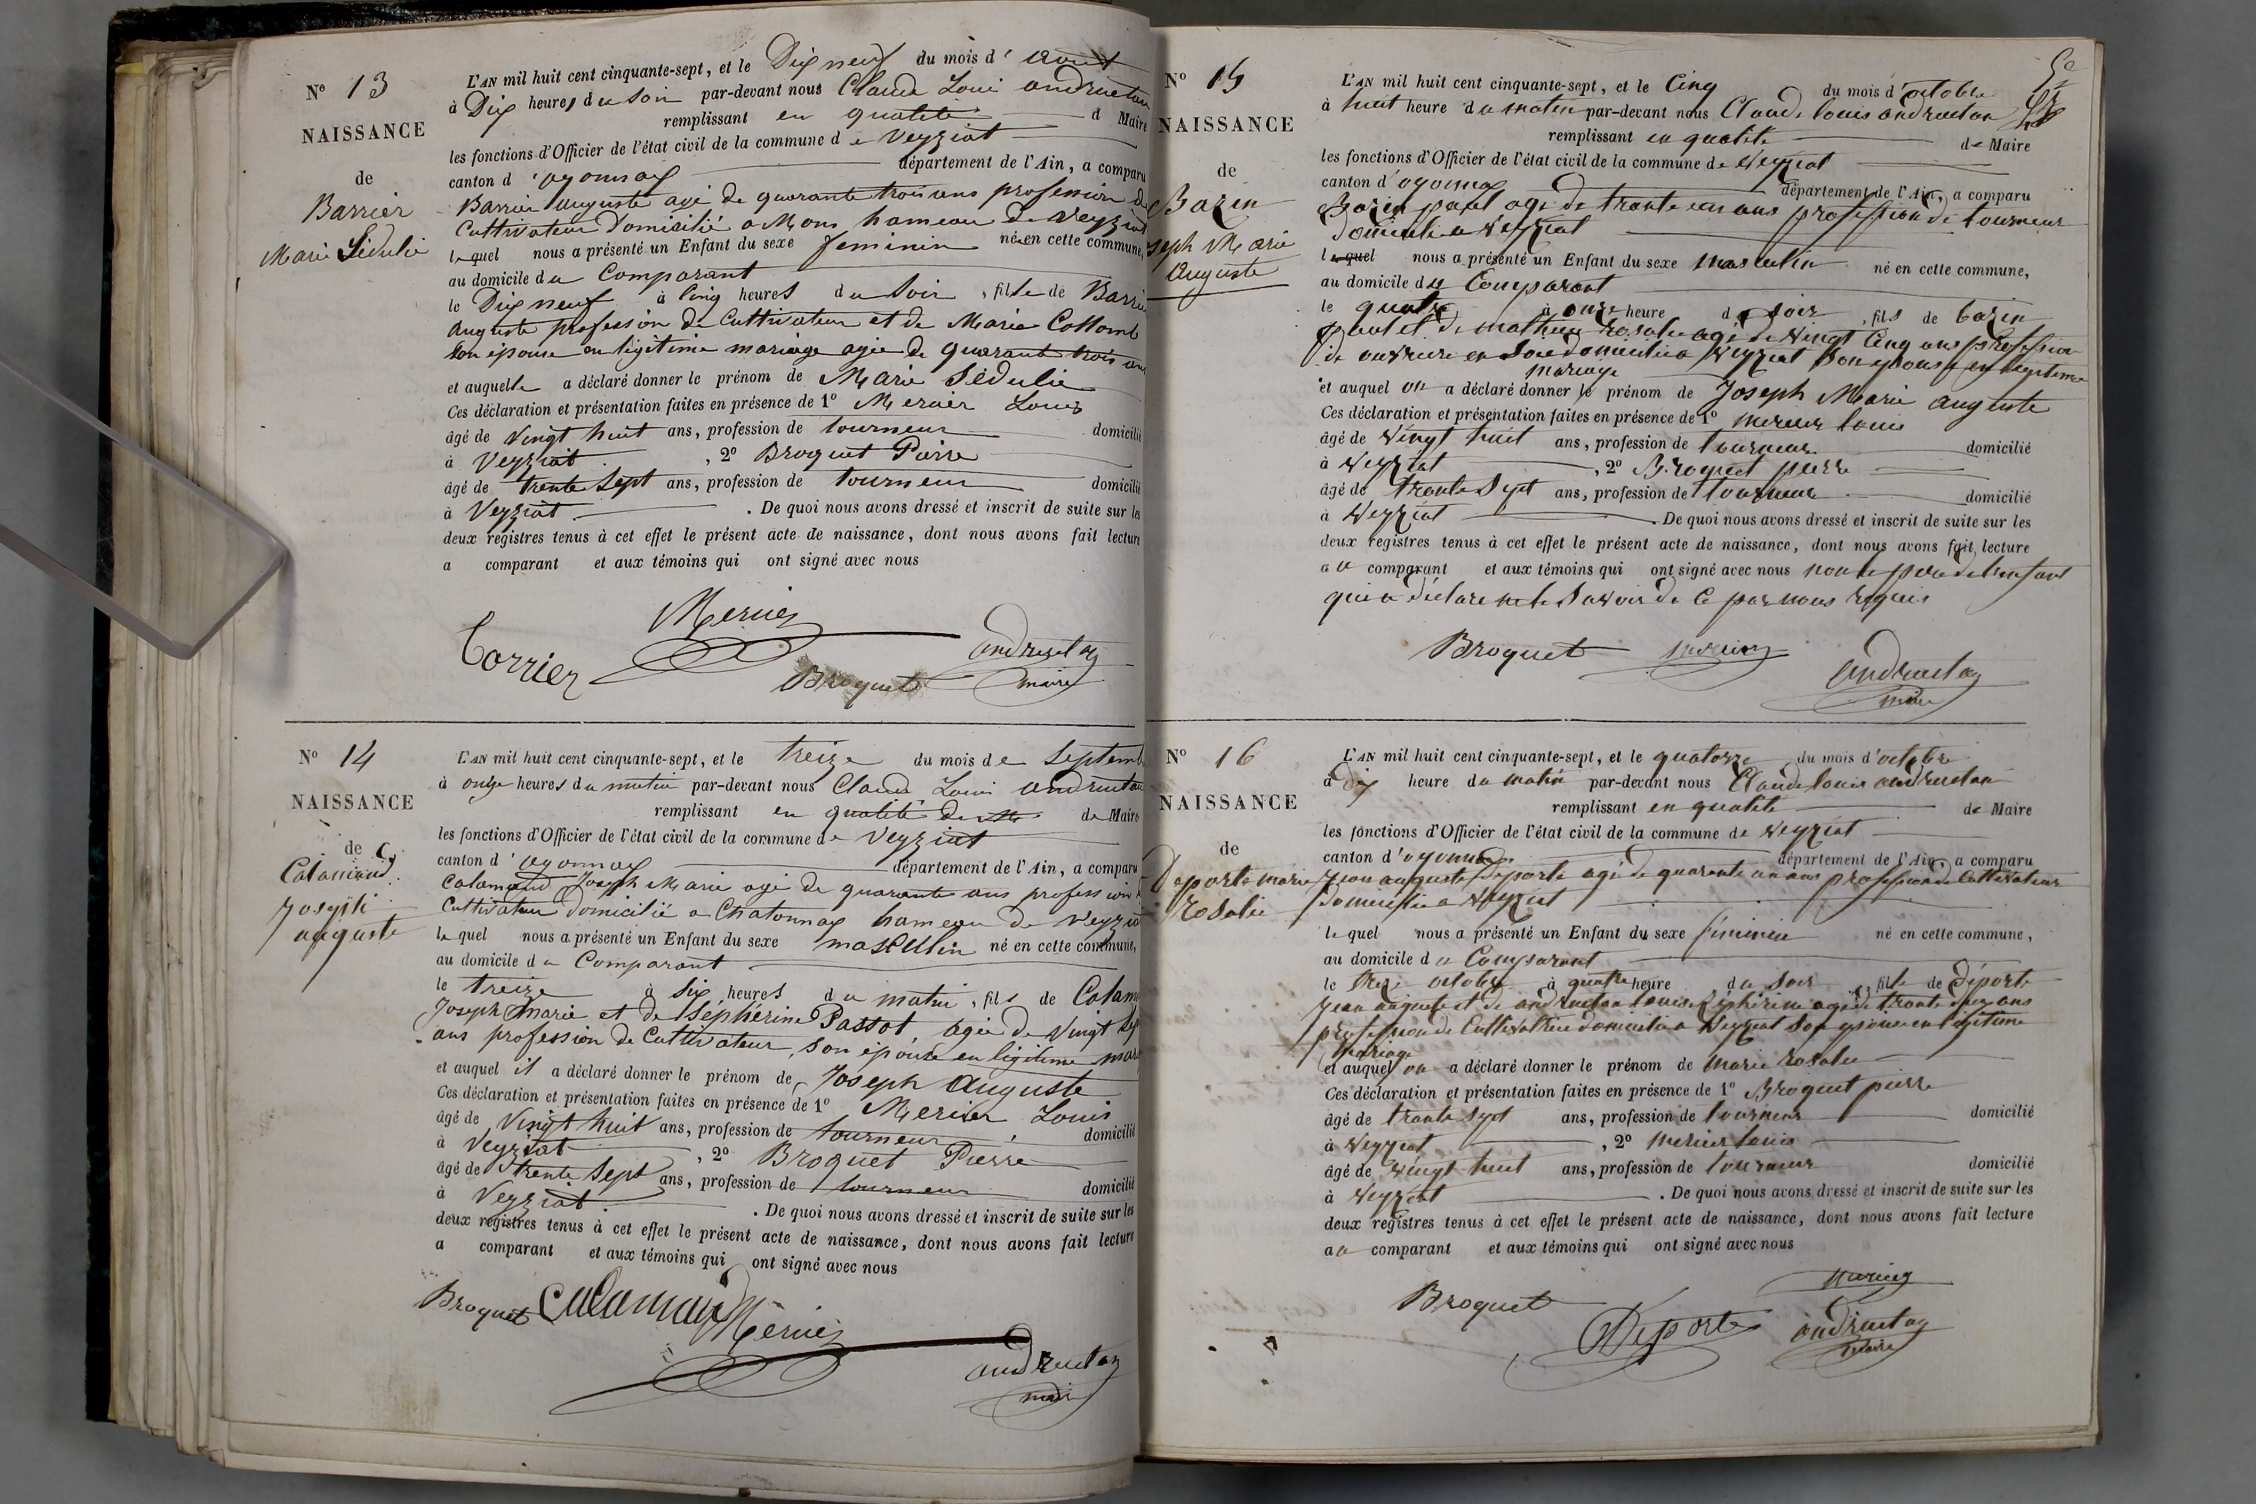 N° 13
NAISSANCE
de
Barrier
Marie Sédulie
L'AN mil huit cent cinquante-sept, et le Dix neuf du mois d'aout
à Dix heures du soir par-devant nous Claude Loui andruetan
remplissant en qualité d Maire
les fonctions d'Officier de l'état civil de la commune de Veyziat
canton d'oyonnax département de l'Ain, a comparu
Barrier auguste agé de quarante trois ans profession de
Cultivateur Domicilié a Mons hameau de Veyziat
lequel nous a présenté un Enfant du sexe feminin née en cette commune,
au domicile du Comparant
le Dix neuf à Cinq heures du Soir, fille de Barrier
Auguste profession de Cultivateur et de Marie Collomb
son épouse en légitime mariage agée de quarante trois ans
et auquelle a déclaré donner le prénom de Marie Sédulie
Ces déclaration et présentation faites en présence de 1° Mercier Louis
âgé de Vingt huit ans, profession de tourneur domicilié
à Veyziat, 2° Broquet Pierre
âgé de trente Sept ans, profession de tourneur domicilié
à Veyziat. De quoi nous avons dressé et inscrit de suite sur les
deux registres tenus à cet effet le présent acte de naissance, dont nous avons fait lecture
a comparant et aux témoins qui ont signé avec nous
Mernier
Barrier
Broquet
andruetan
maire
N° 14
NAISSANCE
de
Calamand
Joseph
auguste
L'AN mil huit cent cinquante-sept, et le treize du mois de Septemb
à onze heures du matin par-devant nous Claude Loui andruetan
remplissant en qualité de Maire
les fonctions d'Officier de l'état civil de la commune de Veyziat
canton d'oyonnax département de l'Ain, a comparu
Calamand Joseph Marie agé de quarante ans profession
Cultivateur domicilié a Chatonnax hameau de Veyziat
lequel nous a présenté un Enfant du sexe masculin né en cette commune,
au domicile du Comparant
le treize à six heures du matin, fils de Calam
Joseph Marie et de Séphérine Passot agée de Vingt Sept
ans profession de Cultivateur, son épouse en légitime mar
et auquel il a déclaré donner le prénom de Joseph Auguste
Ces déclaration et présentation faites en présence de 1° Mercier Louis
âgé de Vingt huit ans, profession de tourneur domicilié
à Veyziat, 2° Broquet Pierre
âgé de trente Sept ans, profession de tourneur domicilié
à Veyziat. De quoi nous avons dressé et inscrit de suite sur les
deux registres tenus à cet effet le présent acte de naissance, dont nous avons fait lecture
a comparant et aux témoins qui ont signé avec nous
Broquet Calamand Mernier
andruetan
maire
N° 15
NAISSANCE
de
Bazin
seph Marie
Auguste
L'AN mil huit cent cinquante-sept, et le Cinq du mois d'octobre
à huit heure du matin par-devant nous Claude louis andruetan
remplissant en qualité de Maire
les fonctions d'Officier de l'état civil de la commune de Veyziat
canton d'oyonnax département de l'Ain, a comparu
Bazin paul agé de trante ans profession de tourneur
domicilié a Veyziat
lequel nous a présenté un Enfant du sexe masculin né en cette commune,
au domicile du Comparant
le quatre à onze heure du soir, fils de bazin
paul et de mathieu rosalie agé de Vingt Cinq ans profession
de ouvriere en soie domiciliée a Veyziat Son epouse en legitime
mariage
et auquel on a déclaré donner le prénom de Joseph Marie auguste
Ces déclaration et présentation faites en présence de 1° mercier louis
âgé de Vingt huit ans, profession de tourneur domicilié
à Veyziat, 2° Broquet pierre
âgé de trante Sept ans, profession de tourneur domicilié
à Veyziat. De quoi nous avons dressé et inscrit de suite sur les
deux registres tenus à cet effet le présent acte de naissance, dont nous avons fait lecture
au comparant et aux témoins qui ont signé avec nous non le père de l'enfant
qui a déclaré ne le Savoir de Ce par nous requis
Broquet mernier
andruetan
maire
N° 16
NAISSANCE
de
Deporte marie
rosalie
L'AN mil huit cent cinquante-sept, et le quatorze du mois d'octobre
à dix heure du matin par-devant nous Claude louis andruetan
remplissant en qualité de Maire
les fonctions d'Officier de l'état civil de la commune de Veyziat
canton d'oyonnax département de l'Ain, a comparu
Jean auguste Deporte agé de quarante un ans profession de Cultivateur
domicilié a Veyziat
lequel nous a présenté un Enfant du sexe féminin né en cette commune,
au domicile du Comparant
le treize octobre à quatre heure du soir, fille de Déporte
Jean auguste et de andruetan louise Zéphirine agé de trante deux ans
profession de Cultivatrice domiciliée a Veyziat Son epouse en légitime
mariage
et auquel on a déclaré donner le prénom de marie rosalie
Ces déclaration et présentation faites en présence de 1° Broquet pierre
âgé de trante sept ans, profession de tourneur domicilié
à Veyziat, 2° mercier louis
âgé de vingt huit ans, profession de tourneur domicilié
à Veyziat. De quoi nous avons dressé et inscrit de suite sur les
deux registres tenus à cet effet le présent acte de naissance, dont nous avons fait lecture
au comparant et aux témoins qui ont signé avec nous
mernier
Broquet
Deporte
andruetan
maire